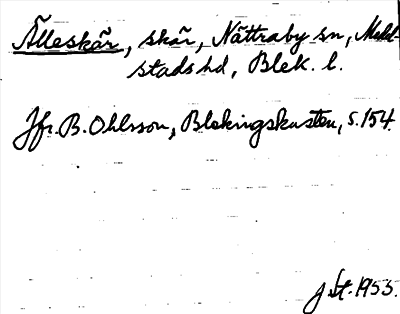 Älleskär, skär, Nättraby sn, Medel-
stads hd, Blek. l.
Jfr. B. Ohlsson, Blekingskusten, s. 154.
J St. 1953.